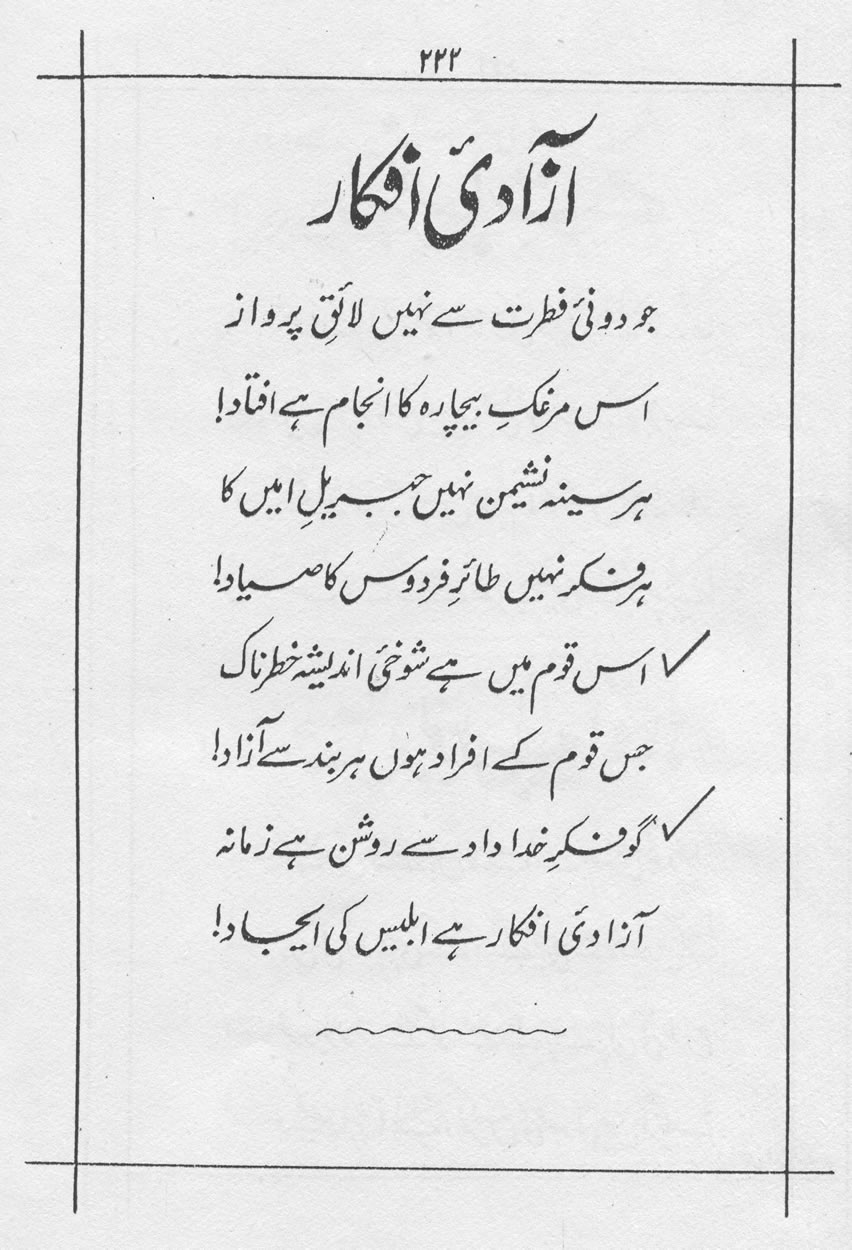 ۲۲۲
آزادیٔ افکار
جو دونیٔ فطرت سے نہیں لائقِ پرواز
اس مرغکِ بیچارہ کا انجام ہے افتاد!
ہر سینہ نشیمن نہیں جبریلِ امیں کا
ہر فکر نہیں طائرِ فردوس کا صیاد!
اس قوم میں ہے شوخیٔ اندیشہ خطرناک
جس قوم کے افراد ہوں ہر بند سے آزاد!
گو فکرِ خدا داد سے روشن ہے زمانہ
آزادیٔ افکار ہے ابلیس کی ایجاد!